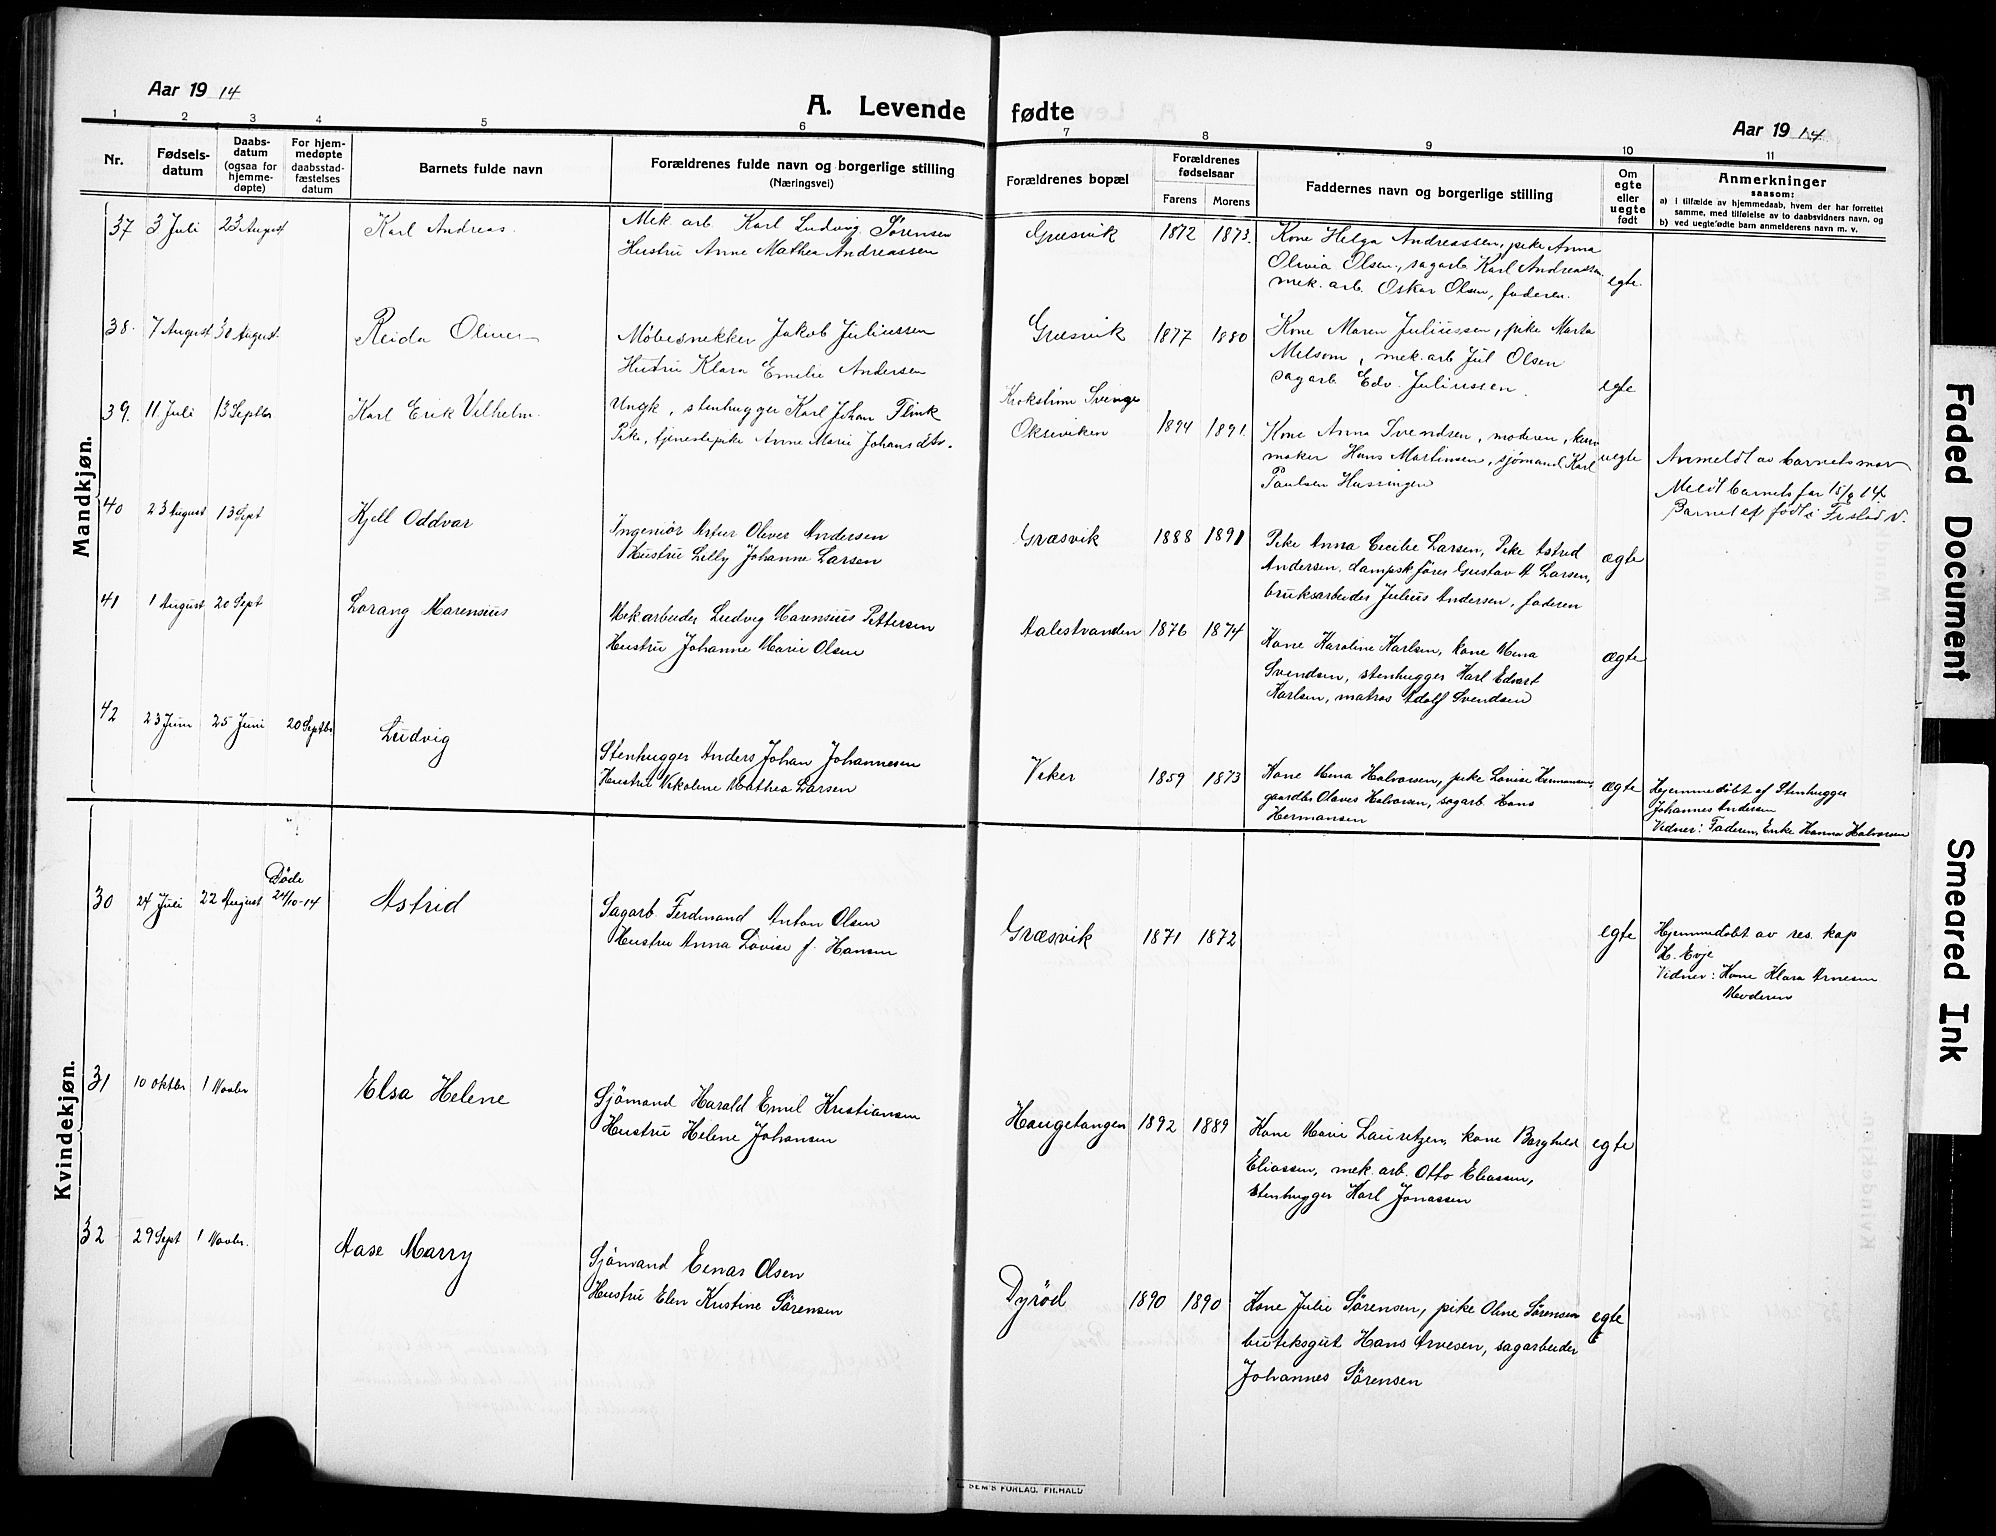 Aar 1914
A. Levende fødte
Aar 1914
1 2 3 4 5 6 7 8 9 10 11
Nr.
Fødselsdatum
Daabsdatum (ogsaa for hjemmedøpte)
For hjemmedøpte daabsstadfæstelses datum
Barnets fulde navn
Forældrenes fulde navn og borgerlige stilling
(Næringsvei)
Forældrenes bopæl
Forældrenes fødselsaar
Farens Morens
Faddernes navn og borgerlige stilling
Om egte eller uegte født
Anmerkninger
saasom:
a) i tilfælde av hjemmedaab, hvem der har forrettet
samme, med tilføielse av to daabsvidners navn, og
b) ved uegte fødte barn anmelderens navn m. v.
Mandkjøn.
37 3 Juli 23 August Karl Andreas.
Mek. arb. Karl Ludvig Sørensen
Hustru Anne Mathea Andreassen
Græsvik 1872 1873.
Kone Helga Andreassen, pike Anna
Olivia Olsen, sagarb Karl Andreassen
mek. arb. Oskar Olsen, faderen.
egte.
38. 7 August 30 August. Reida Oliver
Møbesnekker Jakob Juliussen
Hustru Klara Emilie Andersen
Græsvik 1877 1880
Kone Maren Juliussen, pike Marta
Melsom, mek. arb Jul Olsen
sagarb Edv. Juliussen.
egte
39. 11 Juli 13 Septbr Karl Erik Vilhelm.
Ungk, stenhugger Karl Johan Flink
Pike, tjenestepike Anne Marie Johansdtr.
Krokstrim Sverige
Okseviken 1894 1891.
Kone Anna Svendsen, moderen,
maker Hans Martinsen, sjömand Karl
Paulsen Hussingen
uegte
Anmeldt av barnets mor
Meldt barnets far 15/9 14.
Barnet er født i Frstad V.
40 23 August 13 Sept Kjell Oddvar
Ingeniør Artur Oliver Andersen
Hustru Lilly Johanne Larsen
Græsvik 1888 1891
Pike Anna Cecilie Larsen, Pike Astrid
Andersen. dampskförer Gustav A Larsen,
bruksarbeider Julius Andersen, faderen
ægte
41 1 August 20 Sept Lorang Marensius
Mekarbeider Ludvig Marensius Pettersen
Hustru Johanne Marie Olsen
Aalestranden 1876 1874
Kone Karoline Karlsen, kone Mina
Svendsen, stenhugger Karl Edvart
Karlsen, matros Adolf Svendsen
ægte
42 23 Juni 25 Juni 20 Septbr Ludvig
Stenhugger Anders Johan Johannesen
Hustru Nikoline Mathea Larsen
Viker 1859 1873
Kone Mina Halvorsen, pike Lovise Hermansen,
gaardbr Olaves Halvorsen, sagarb Hans
Hermansen
ægte
Hjemmedöbt af Stenhugger
Johannes Andersen
Vidner: Faderen, Enke Hanna Halvorsen
Kvindekjøn.
30 24 Juli 22 August Döde 24/10-14 Astrid
Sagarb. Ferdinand Anton Olsen
Hustru Anna Lovise f. Hansen
Græsvik 1871 1872
egte
Hjemmedöbt av res. kap
H. Evje
Vidner: Kone Klara Arnesen
Moderen
31 10 Oktbr 1 Novbr Elsa Helene
Sjömand Harald Emil Kristiansen
Hustru Helene Johansen
Haugetangen 1892 1889
Kone Marie Lauretzen, kone Borghild
Eliassen, mek. arb. Otto Eliassen,
stenhugger Karl Jonassen
egte
32 29 Sept 1 Novbr. Aase Marry
Sjömand Einar Olsen
Hustru Elen Kristine Sörensen
Dyröd 1890 1890
Kone Julie Sörensen, pike Oline Sörensen
butiksgut Hans Arvesen, sagarbeider
Johannes Sörensen
egte
SEM'S FORLAG, FR.HALD
Faded Document
Smeared Ink